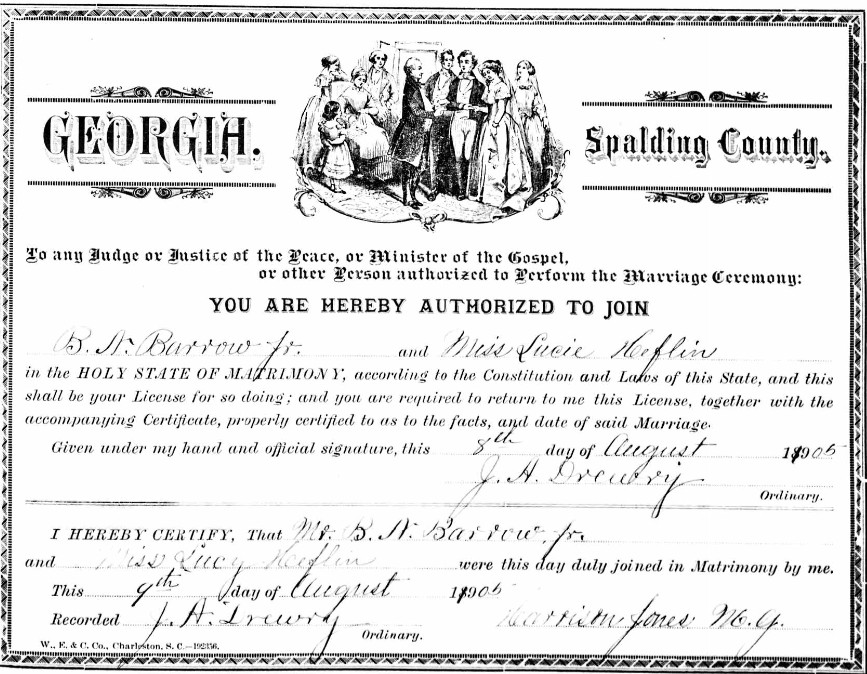 GEORGIA.
Spalding County.
To any Judge or Justice of the Peace, or Minister of the Gospel,
or other Person authorized to Perform the Marriage Ceremony:
YOU ARE HEREBY AUTHORIZED TO JOIN
B. N. Barrow Jr. and Miss Lucie Heflin
in the HOLY STATE OF MATRIMONY, according to the Constitution and Laws of this State, and this
shall be your License for so doing; and you are required to return to me this License, together with the
accompanying Certificate, properly certified to as to the facts, and date of said Marriage.
Given under my hand and official signature, this 8th day of August 1905
J. A. Drewry
Ordinary.
I HEREBY CERTIFY, That Mr. B. N. Barrow, Jr.
and Miss Lucy Heflin were this day duly joined in Matrimony by me.
This 9th day of August 1905
Recorded J. A. Drewry Ordinary. Harrison Jones M. G.
W., E. & C. Co., Charleston, S. C.—192356.